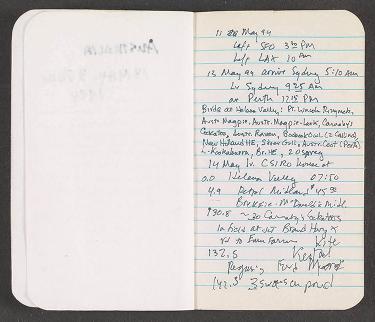 AUSTRALIA
11 May 94
Left SFO 3 30 PM
Left LAX 10 PM
13 May 94 arrive Sydney 5:10 AM
Lv Sydney 9 25 AM
ar Perth 12 15 PM
Birds at Helena Valley: Pt. Lincoln Ringneck,
Austr. Magpie, Austr. Magpie-Lark, Carnaby's
Cockatoo, Austr. Raven, Boobook Owl (2 calling)
New Holland HE, Silver Gull, Austr. Coot (Perth)
L. Kookaburra, Br. HE, 2 Osprey
14 May lv. CSIRO house at
0.0 Helena Valley 07:50
4.9 Petrol Midland $45
Brekkie - McDonald's Midl.
30.8 ~30 Carnaby's Cockatoos
in field at jct Brand Hwy &
rd to
Kite
132.5 Kestrel
142.3 3 swans on pond